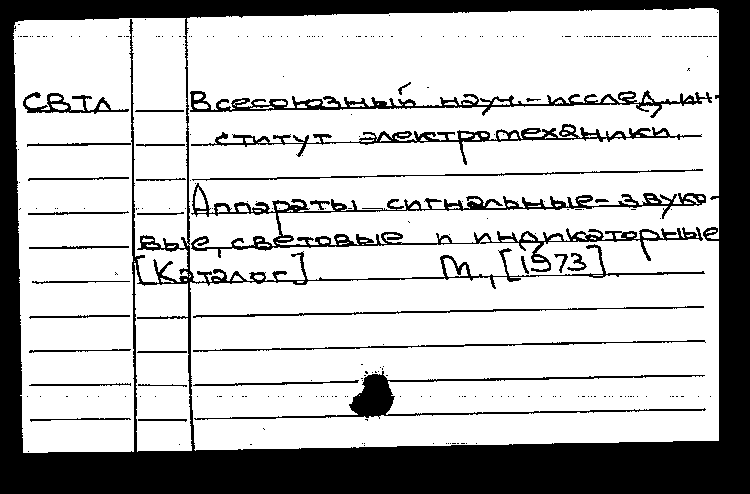 СВТЛ Всесоюзный науч.-исслед. ин-
ститут электромеханики.
Аппараты сигнальные-звуко-
вые, световые и индикаторные
[Каталог]. М., [1973].